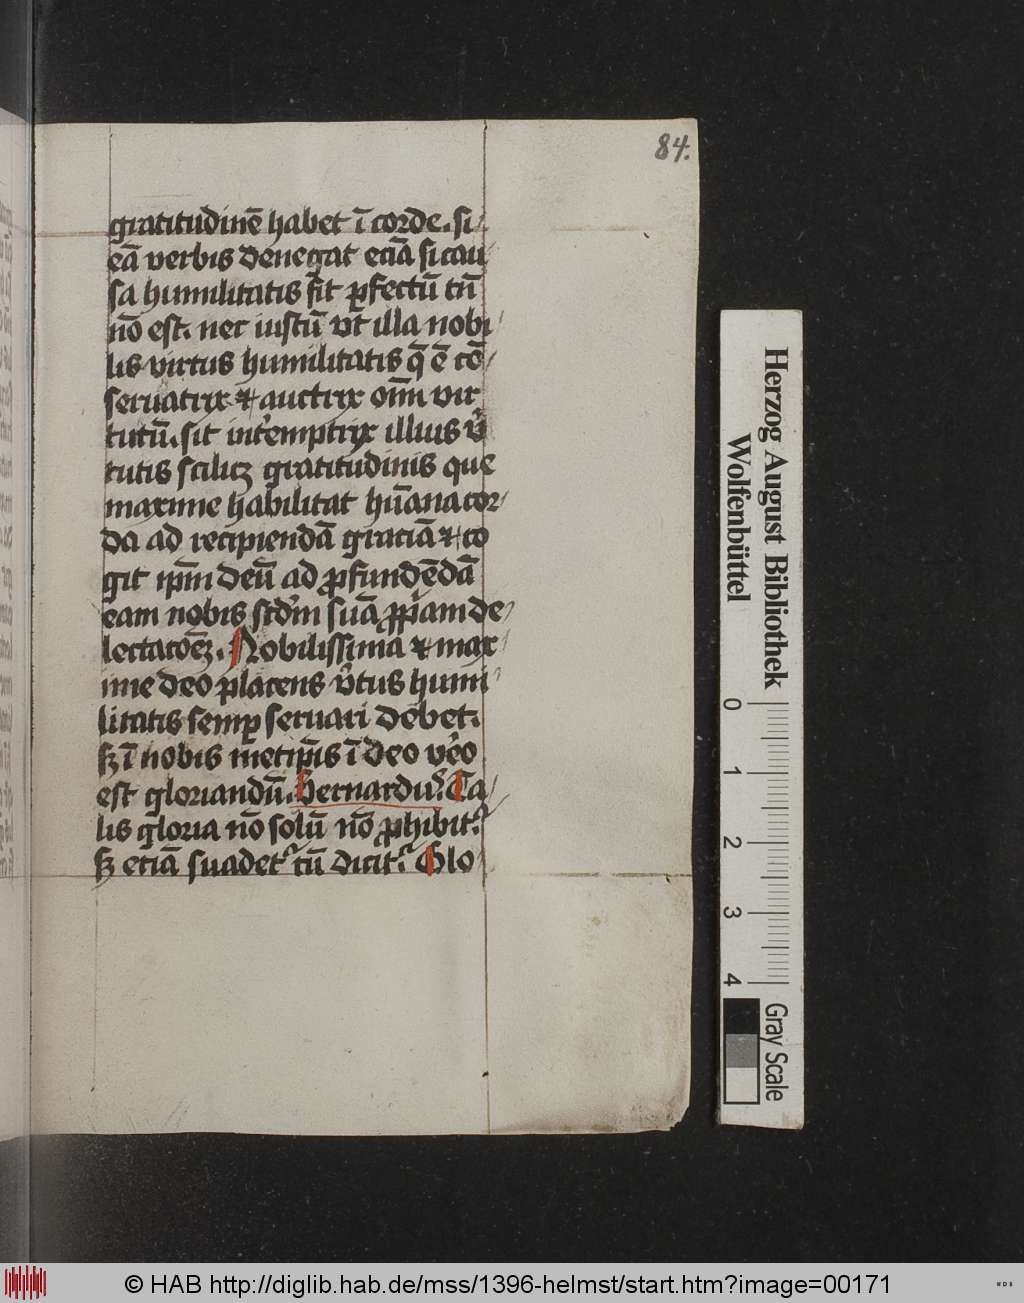 84.
gratitudinē habet ī corde. si/
eā verbis denegat eciā si cau
sa humilitatis sit ꝑfectū tn̄
nō est. nec iustū vt illa nobi/
lis virtus humilitatis q̄ ē cō/
seruatrix ⁊ auctrix oīm vir
tutū. sit int'emptrix illius v'
tutis scilicꝫ gratitudinis que
maxime habilitat hūana cor/
da ad recipiendā graciā ⁊ co
git ip̄m deū ad ꝓfundēdā
eam nobis scd'm suā ꝓp̄iam de/
lectacōēꝫ. Nobilissima ⁊ max/
ime deo placens v'tus humi/
litatis semꝑ seruari debet.
sꝫ ī nobis metip̄is ī deo v'o
est gloriandū. Bernardu9. Ta/
lis gloria nō solū nō ꝓhibit'
sꝫ etiā suadet' cū dicit'. Glo/
Herzog August Bibliothek
Wolfenbüttel
0 1 2 3 4
Gray Scale
© HAB http://diglib.hab.de/mss/1396-helmst/start.htm?image=00171
WDB